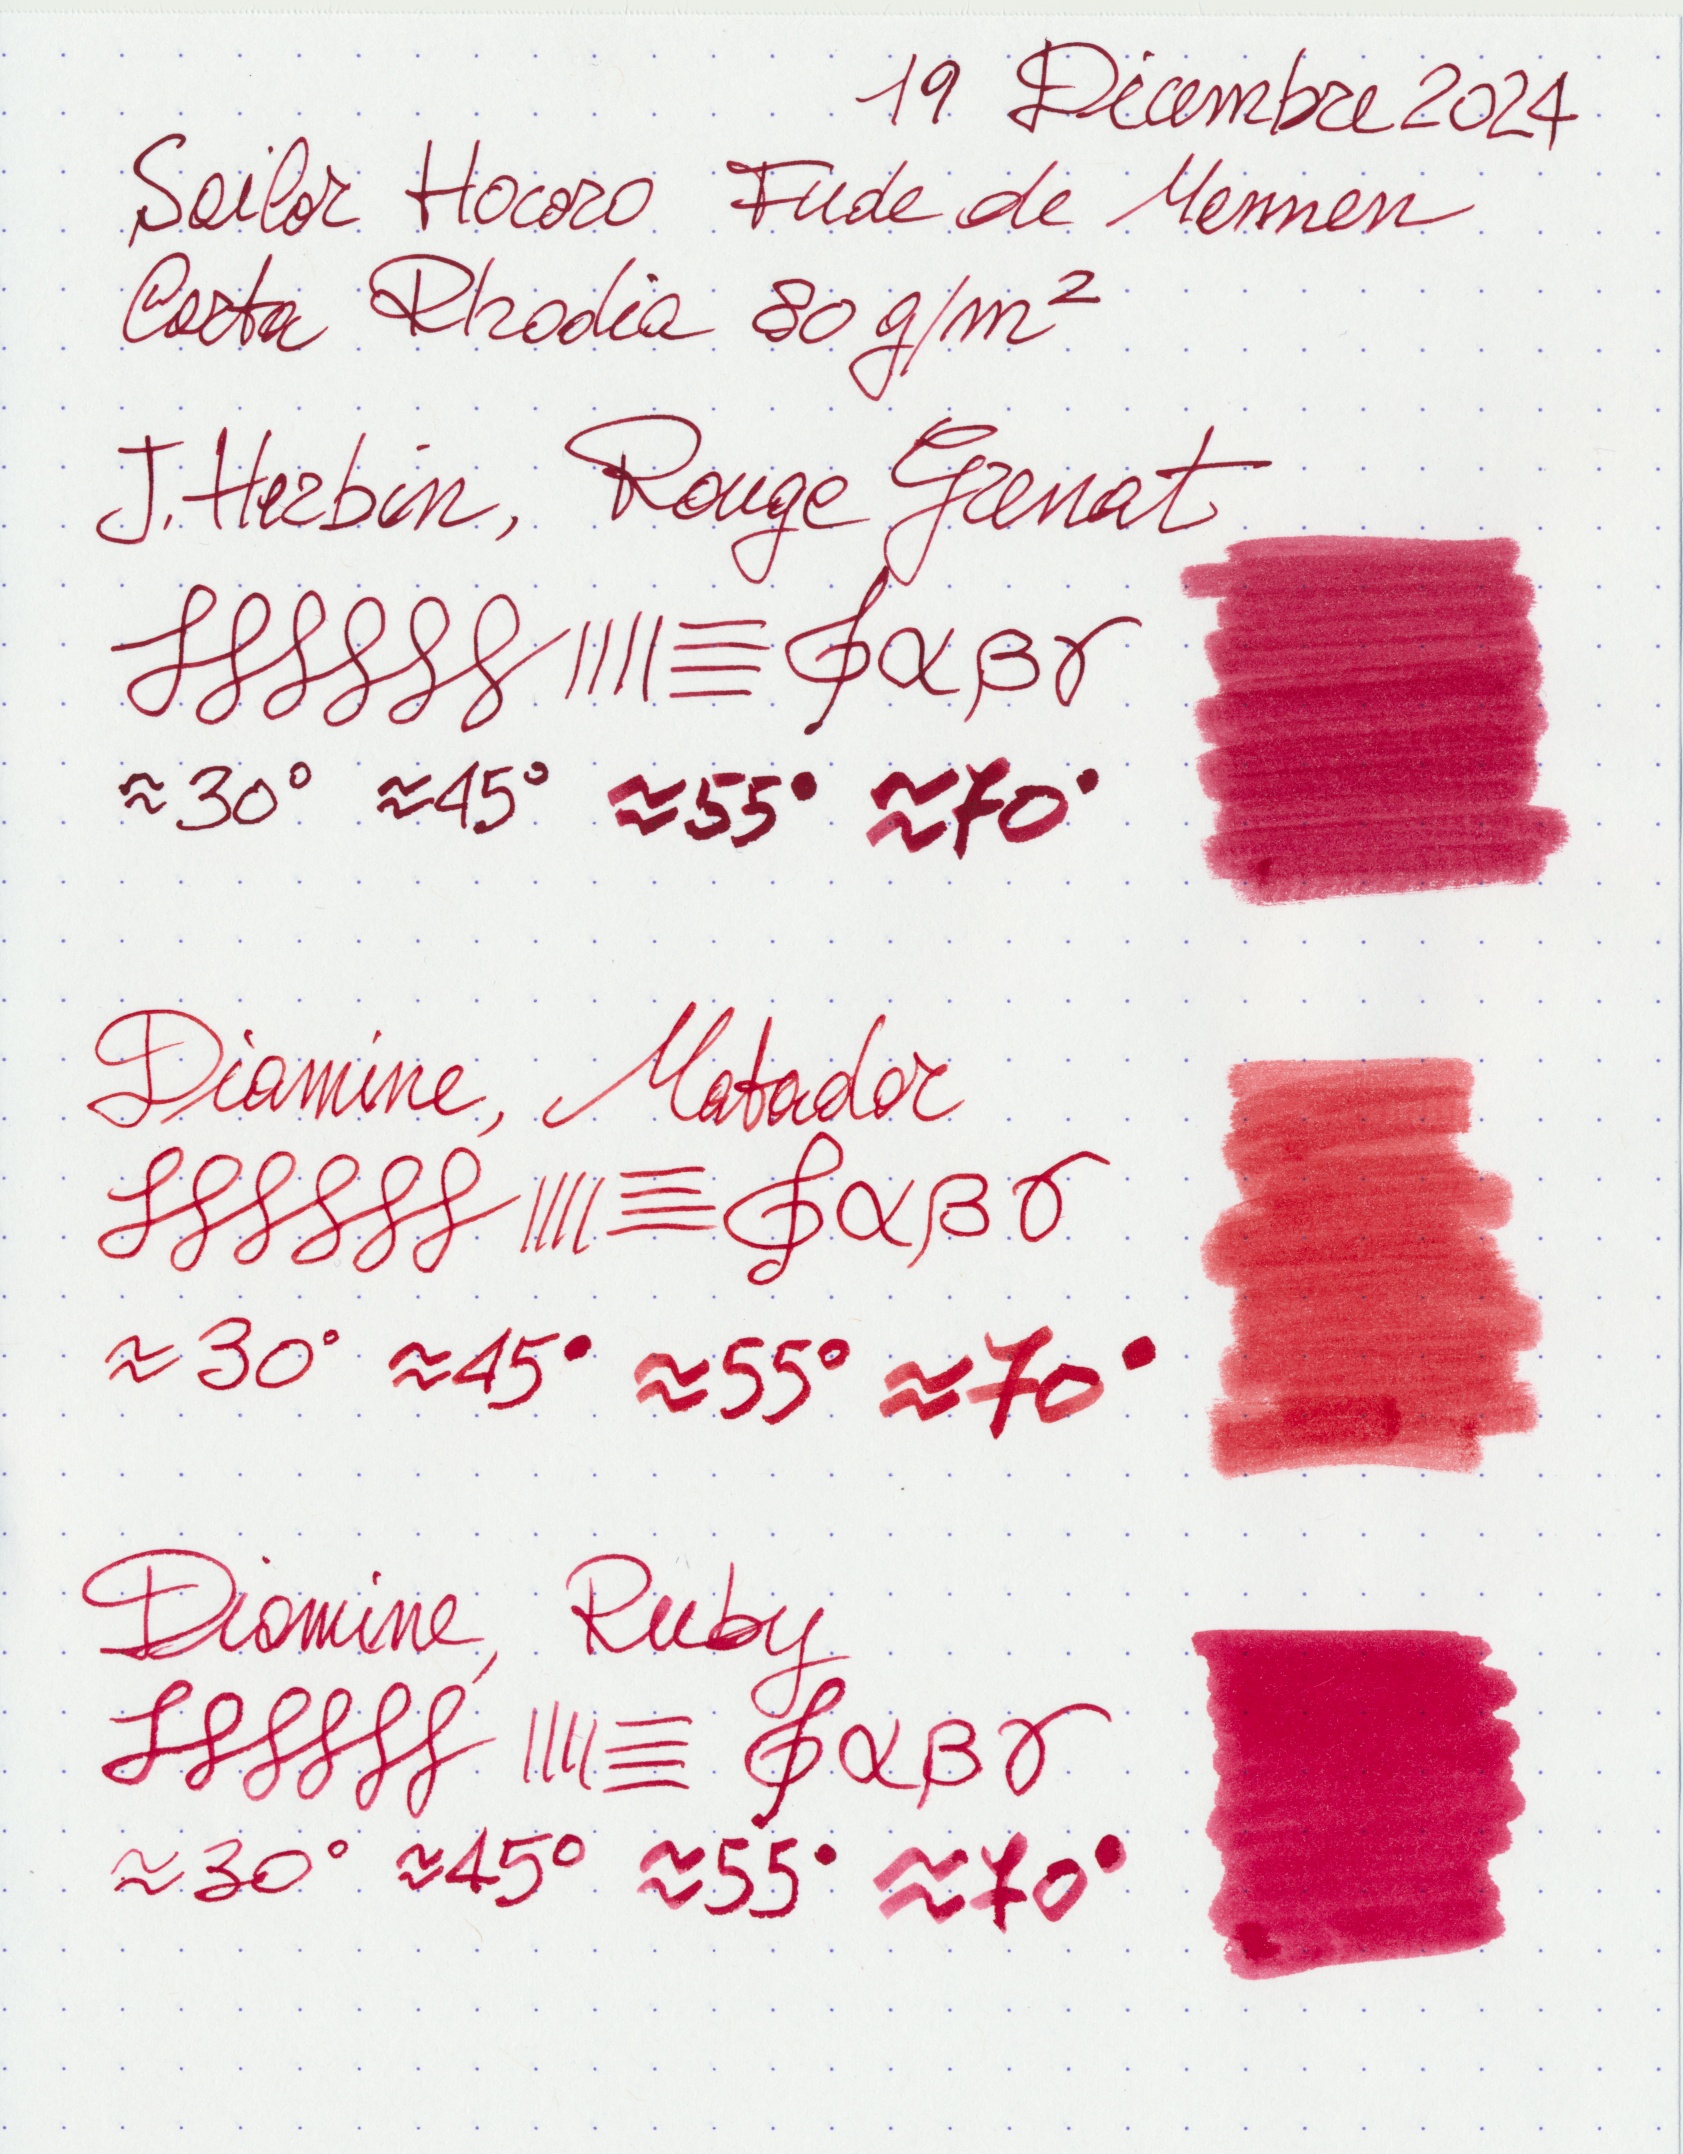 19 Dicembre 2024
Sailor Hocoro Fude de Mannen
Carta Rhodia 80 g/m²
J. Herbin, Rouge Grenat
α β γ
≈30° ≈45° ≈55° ≈70°
Diamine, Matador
α β γ
≈30° ≈45° ≈55° ≈70°
Diamine, Ruby
α β γ
≈30° ≈45° ≈55° ≈70°